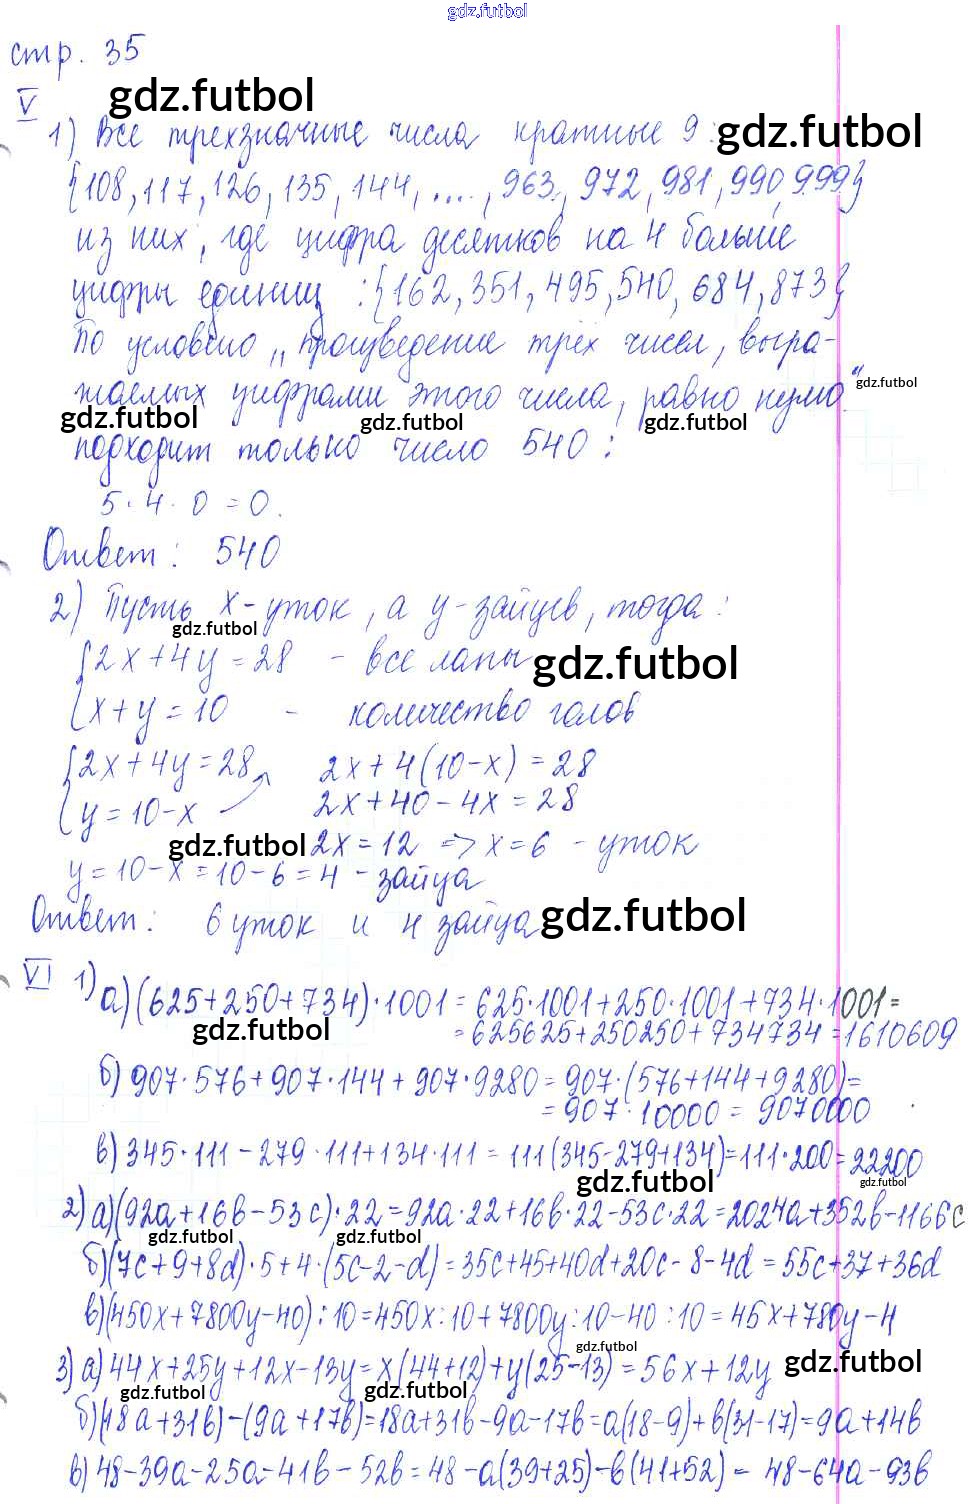 gdz.futbol
стр. 35
V gdz.futbol
1) Все трехзначные числа кратные 9: gdz.futbol
{108, 117, 126, 135, 144, ...., 963, 972, 981, 990, 999}
из них, где цифра десятков на 4 больше
цифры единиц: {162, 351, 495, 540, 684, 873}
По условию „произведение трёх чисел, выра-
жаемых цифрами этого числа, равно нулю" gdz.futbol
gdz.futbol gdz.futbol gdz.futbol
подходит только число 540:
5 · 4 · 0 = 0.
Ответ: 540
2) Пусть x - уток, а y - зайцев, тогда:
gdz.futbol
{2x + 4y = 28 - все лапы gdz.futbol
{x + y = 10 - количество голов
{2x + 4y = 28 2x + 4(10 - x) = 28
{y = 10 - x 2x + 40 - 4x = 28
gdz.futbol 2x = 12 => x = 6 - уток
y = 10 - x = 10 - 6 = 4 - зайца
Ответ: 6 уток и 4 зайца gdz.futbol
VI 1) а) (625 + 250 + 734) · 1001 = 625 · 1001 + 250 · 1001 + 734 · 1001 =
gdz.futbol = 625625 + 250250 + 734734 = 1610609
б) 907 · 576 + 907 · 144 + 907 · 9280 = 907 · (576 + 144 + 9280) =
= 907 · 10000 = 9070000
в) 345 · 111 - 279 · 111 + 134 · 111 = 111 (345 - 279 + 134) = 111 · 200 = 22200
gdz.futbol gdz.futbol
2) а) (92a + 16b - 53c) · 22 = 92a · 22 + 16b · 22 - 53c · 22 = 2024a + 352b - 1166c
gdz.futbol gdz.futbol
б) (7c + 9 + 8d) · 5 + 4 · (5c - 2 - d) = 35c + 45 + 40d + 20c - 8 - 4d = 55c + 37 + 36d
в) (450x + 7800y - 40) : 10 = 450x : 10 + 7800y : 10 - 40 : 10 = 45x + 780y - 4
gdz.futbol
3) а) 44x + 25y + 12x - 13y = x(44 + 12) + y(25 - 13) = 56x + 12y gdz.futbol
gdz.futbol gdz.futbol
б) (18a + 31b) - (9a + 17b) = 18a + 31b - 9a - 17b = a(18 - 9) + b(31 - 17) = 9a + 14b
в) 48 - 39a - 25a - 41b - 52b = 48 - a(39 + 25) - b(41 + 52) = 48 - 64a - 93b